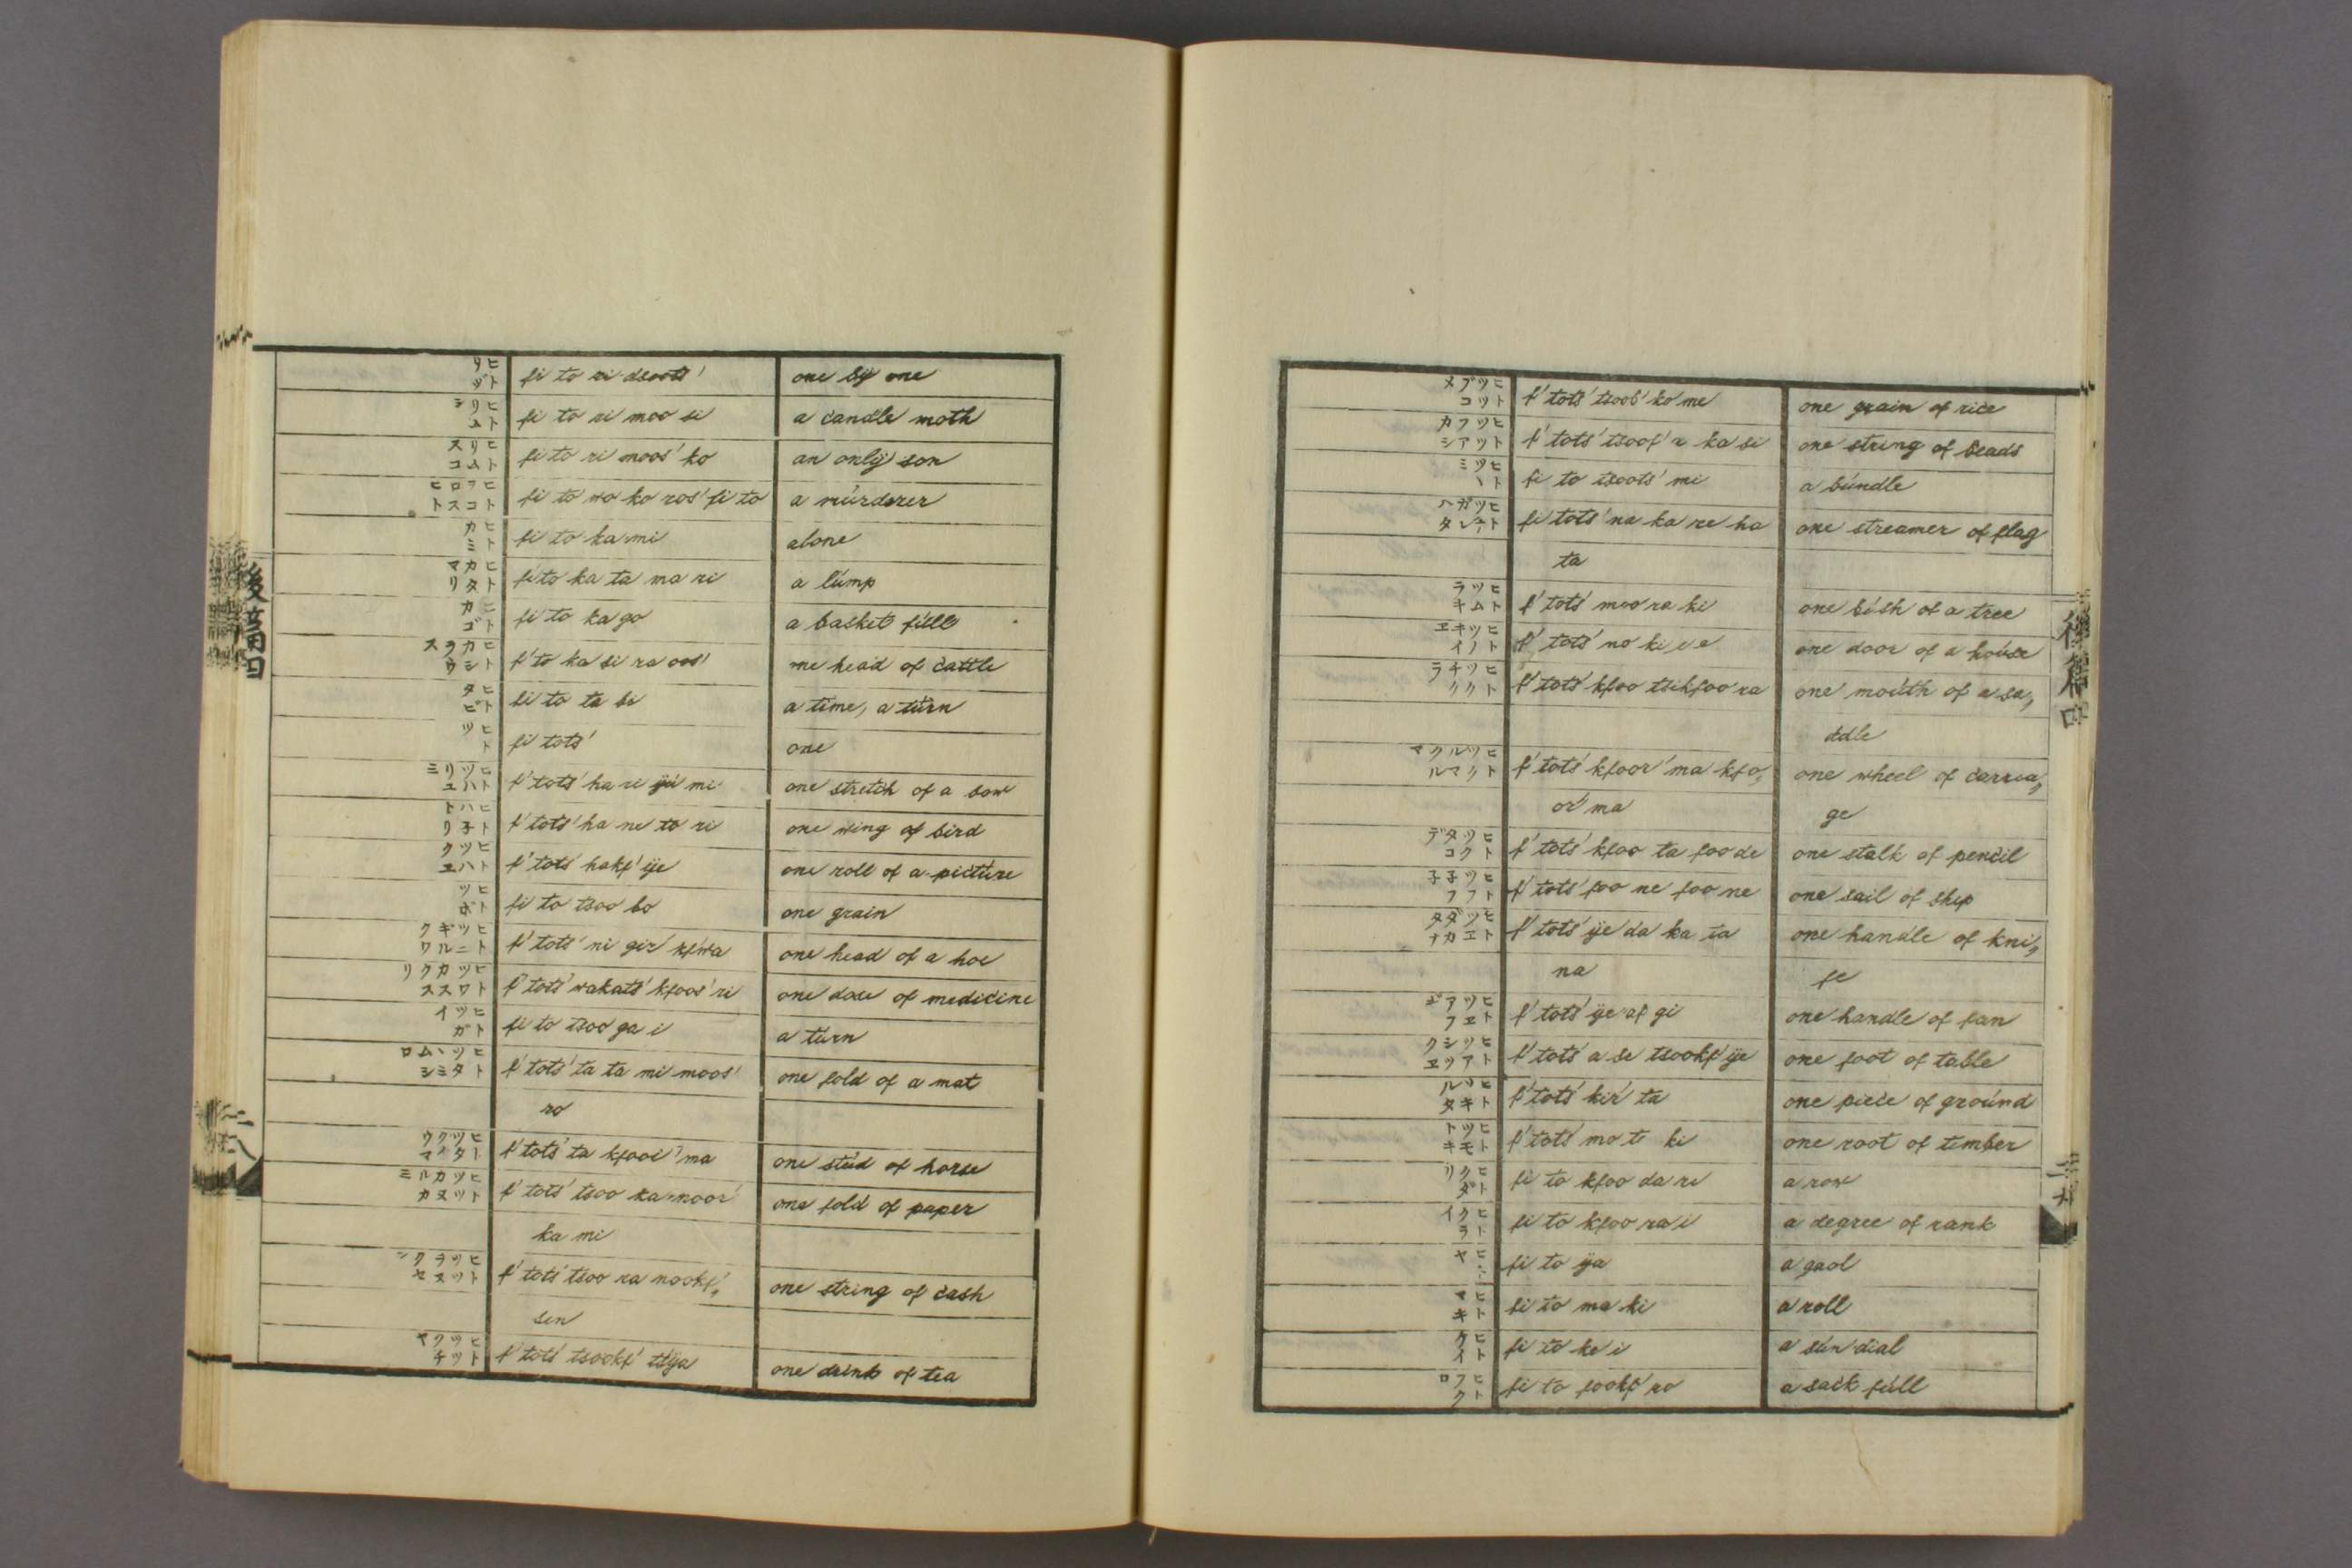 ヒトリヅ fi to ri dsoots' one by one
ヒトリムシ fi to ri moo si a candle moth
ヒトリムスコ fi to ri moos' ko an only son
ヒトヲコロスヒト fi to wo ko ros' fi to a murderer
ヒトカミ fi to ka mi alone
ヒトカタマリ fi to ka ta ma ri a lump
ヒトカゴ fi to ka go a basket full
ヒトカシラウス f' to ka si ra oos' one head of cattle
ヒトタビ fi to ta bi a time, a turn
ヒトツ fi tots' one
ヒトツハリユミ f' tots' ha ri yu mi one stretch of a bow
ヒトハ子トリ f' tots' ha ne to ri one wing of bird
ヒトツハクヱ f' tots' hakf' ye one roll of a picture
ヒトツボ fi to tsoo bo one grain
ヒトツニギルクワ f' tots' ni gir' kfwa one head of a hoe
ヒトツワカツクスリ f' tots' wakats' kfoos' ri one dose of medicine
ヒトツガイ fi to tsoo ga i a turn
ヒトツタヽミムシロ f' tots' ta ta mi moos' one fold of a mat
ro
ヒトツタグウマ f' tots' ta kfooi' ma one stud of horse
ヒトツツカヌルカミ f' tots' tsoo ka noor' one fold of paper
ka mi
ヒトツツラヌクセン f' tots' tsoo ra nookf' „ one string of cash
sen
ヒトツツクチヤ f' tots' tsookf' tsya one drink of tea
後篇四
二十八
ヒトツツブコメ f' tots' tsoob' ko me one grain of rice
ヒトツツフアカシ f' tots' tsoof' a ka si one string of beads
ヒトツヽミ fi to tsoots' mi a bundle
ヒトツナガレハタ fi tots' na ka re ha one streamer of flag
ta
ヒトツムラキ f' tots' moo ra ki one bush of a tree
ヒトツノキイヱ f' tots' no ki i e one door of a house
ヒトツクチクラ f' tots' kfoo tsikfoo ra one mouth of a sa„
ddle
ヒトツクルマクルマ f' tots' kfoor' ma kfo„ one wheel of carria„
or' ma ge
ヒトツクタフデ f' tots' kfoo ta foo de one stalk of pencil
ヒトツフ子フ子 f' tots' foo ne foo ne one sail of ship
ヒトツヱダカタナ f' tots' ye da ka ta one handle of kni„
na fe
ヒトツヱアフギ f' tots' ye af gi one handle of fan
ヒトツアシツクヱ f' tots' a se tsookf' ye one foot of table
ヒトツキルタ f' tots' kir' ta one piece of ground
ヒトツモトキ f' tots' mo to ki one root of timber
ヒトクダリ fi to kfoo da ri a row
ヒトクライ fi to kfoo ra i a degree of rank
ヒトヤ fi to ya a gaol
ヒトマキ fi to ma ki a roll
ヒトケイ fi to ke i a sun dial
ヒトフクロ fi to fookf' ro a sack full